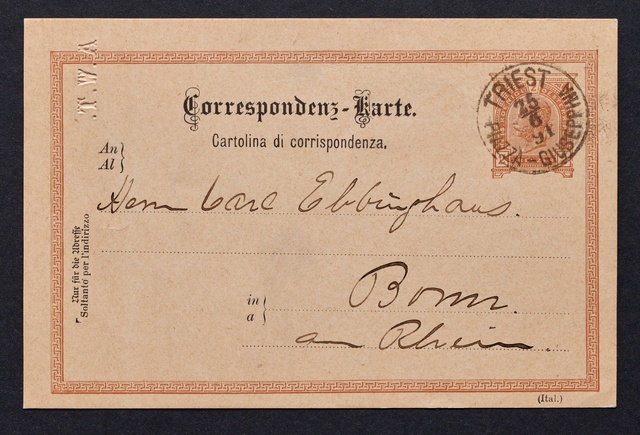 T.W.A.
Correspondenz-Karte.
Cartolina di corrispondenza.
An
Al
TRIEST
PIAZZA-GIUSEPPINA
26
91
Herrn Carl Ebbinghaus.
Nur für die Adresse
Soltanto per l'indirizzo
in
a
Bonn.
am Rhein.
(Ital.)